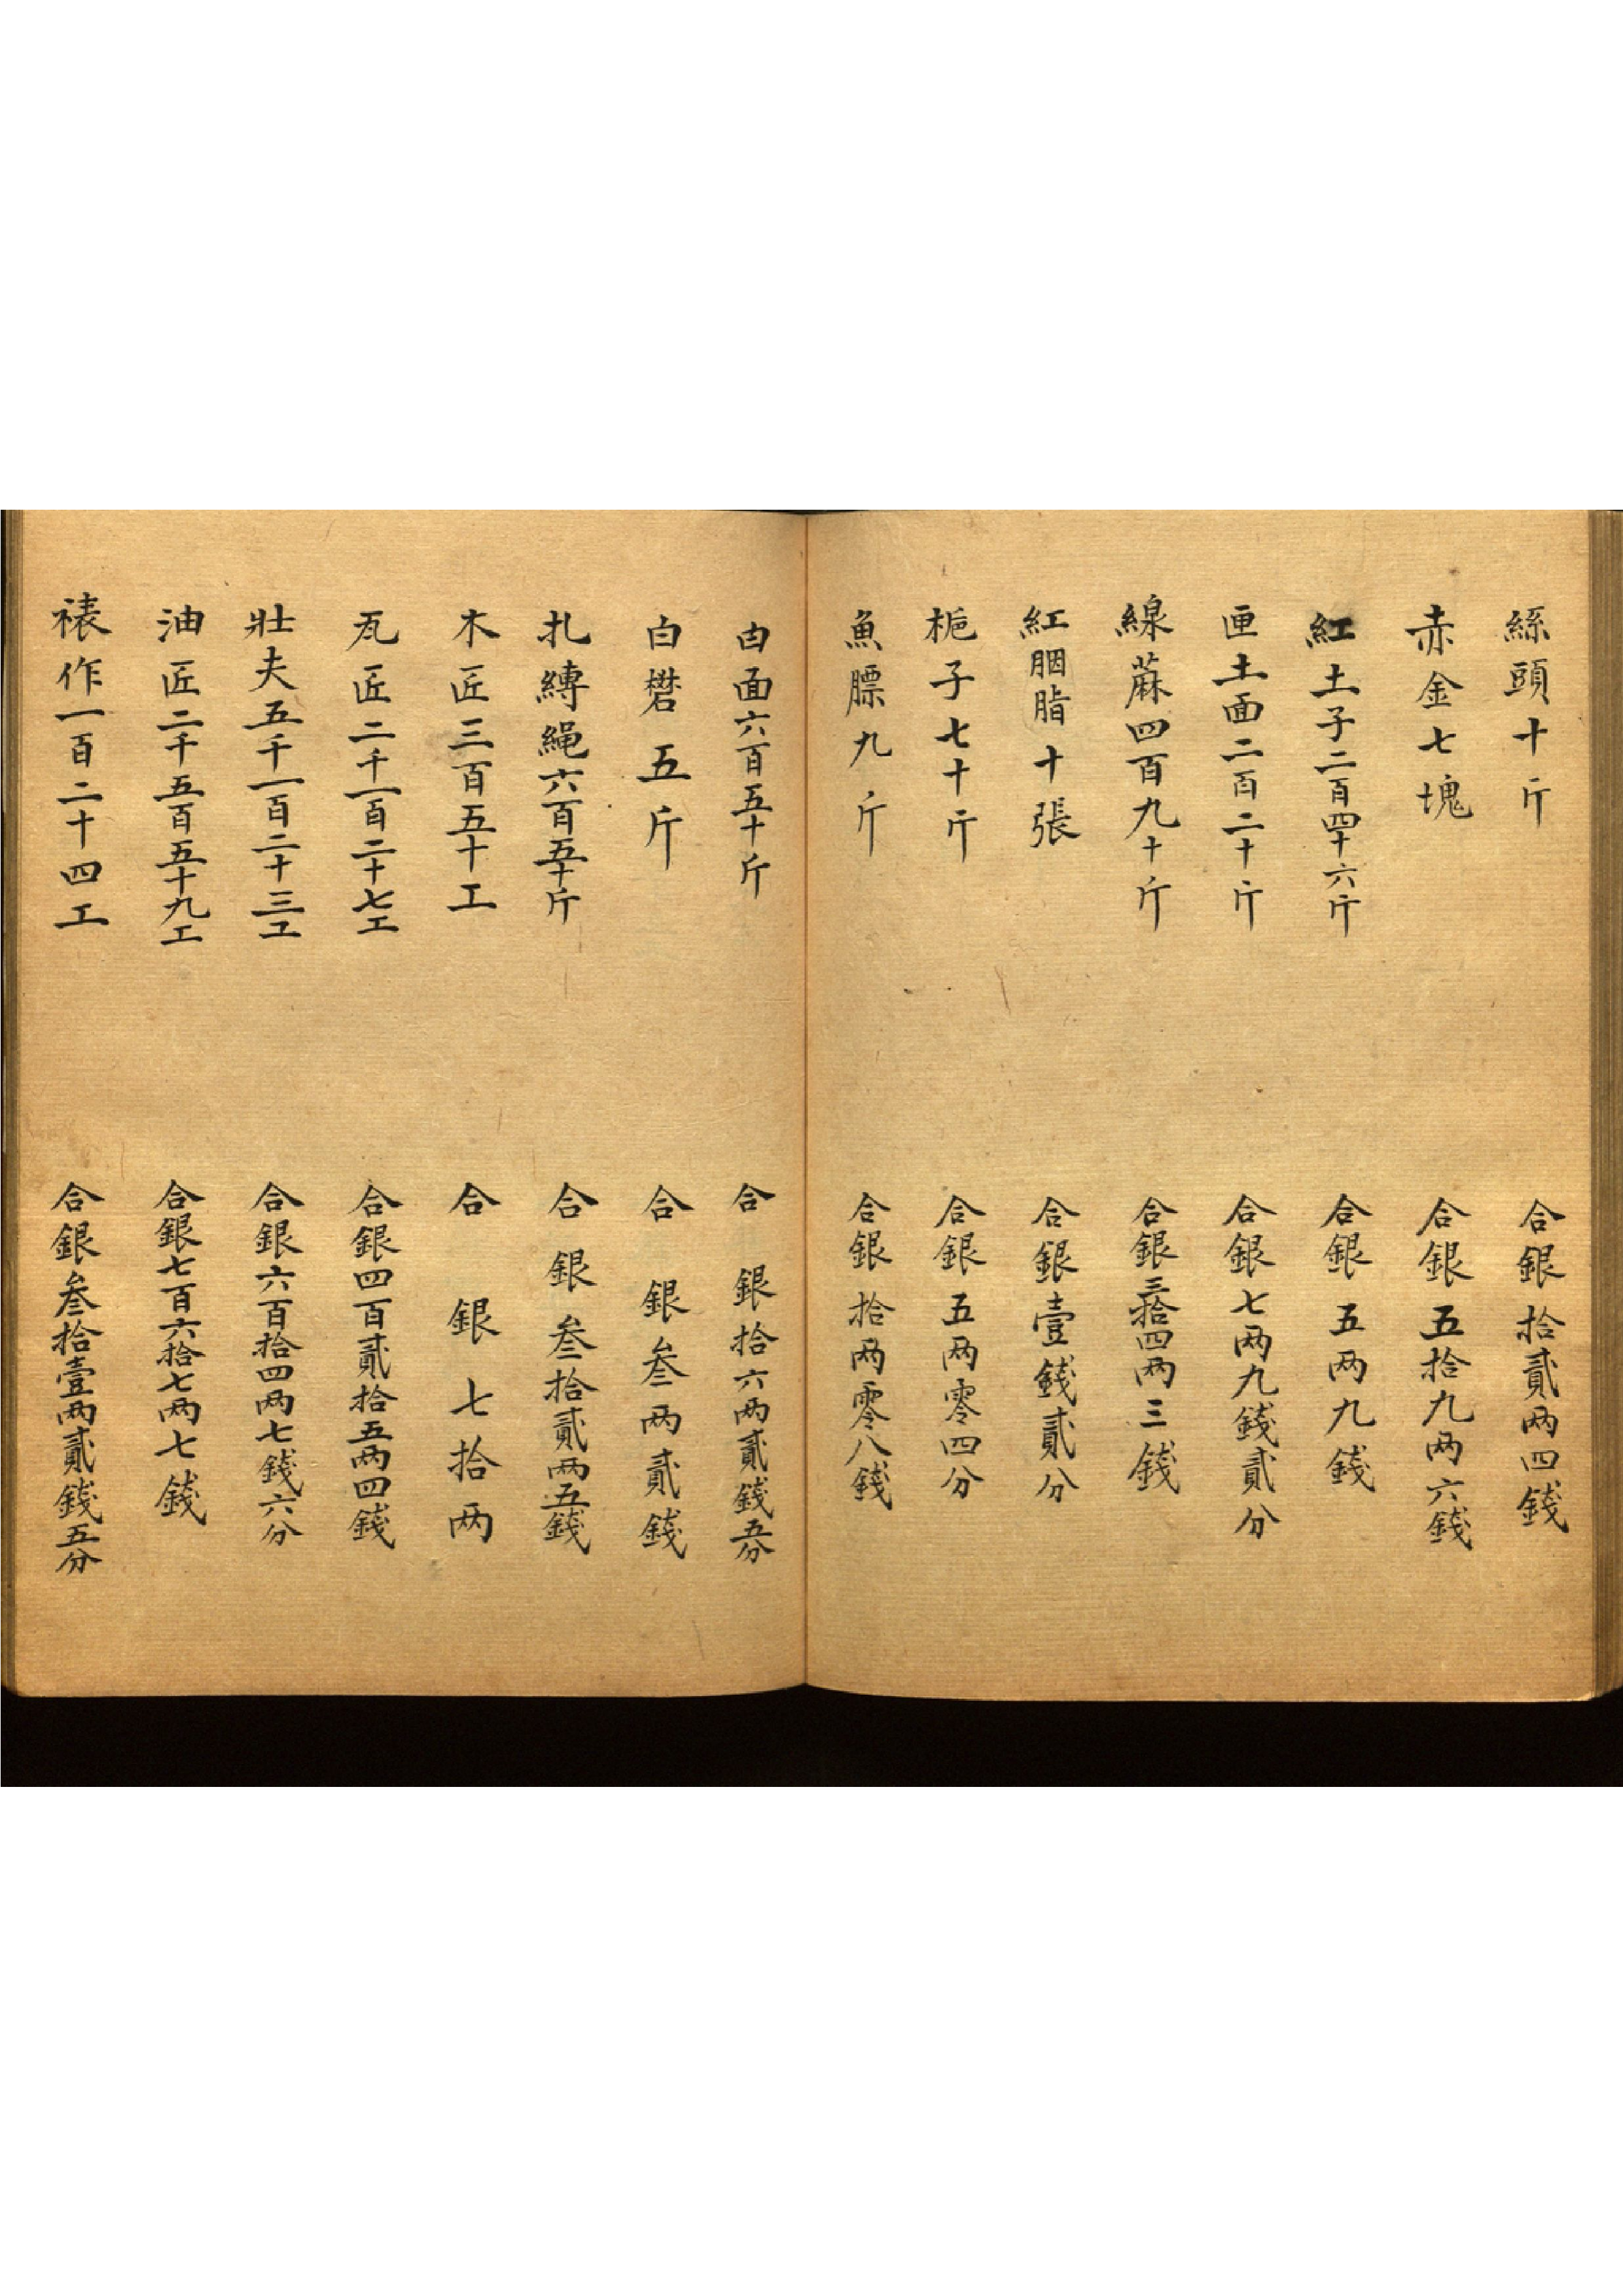 絲頭十斤 合銀拾貳两四錢
赤金七塊 合銀五拾九两六錢
紅土子二百四十六斤 合銀五两九錢
匣土面二百二十斤 合銀七两九錢貳分
線蔴四百九十斤 合銀三拾四两三錢
紅胭脂十張 合銀壹錢貳分
梔子七十斤 合銀五两零四分
魚膘九斤 合銀拾两零八錢
白面六百五十斤 合銀拾六两貳錢五分
白礬五斤 合銀叁两貳錢
扎縳繩六百五十斤 合銀叁拾貳两五錢
木匠三百五十工 合銀七拾两
瓦匠二千一百二十七工 合銀四百貳拾五两四錢
壯夫五千一百二十三工 合銀六百拾四两七錢六分
油匠二千五百五十九工 合銀七百六拾七两七錢
裱作一百二十四工 合銀叁拾壹两貳錢五分